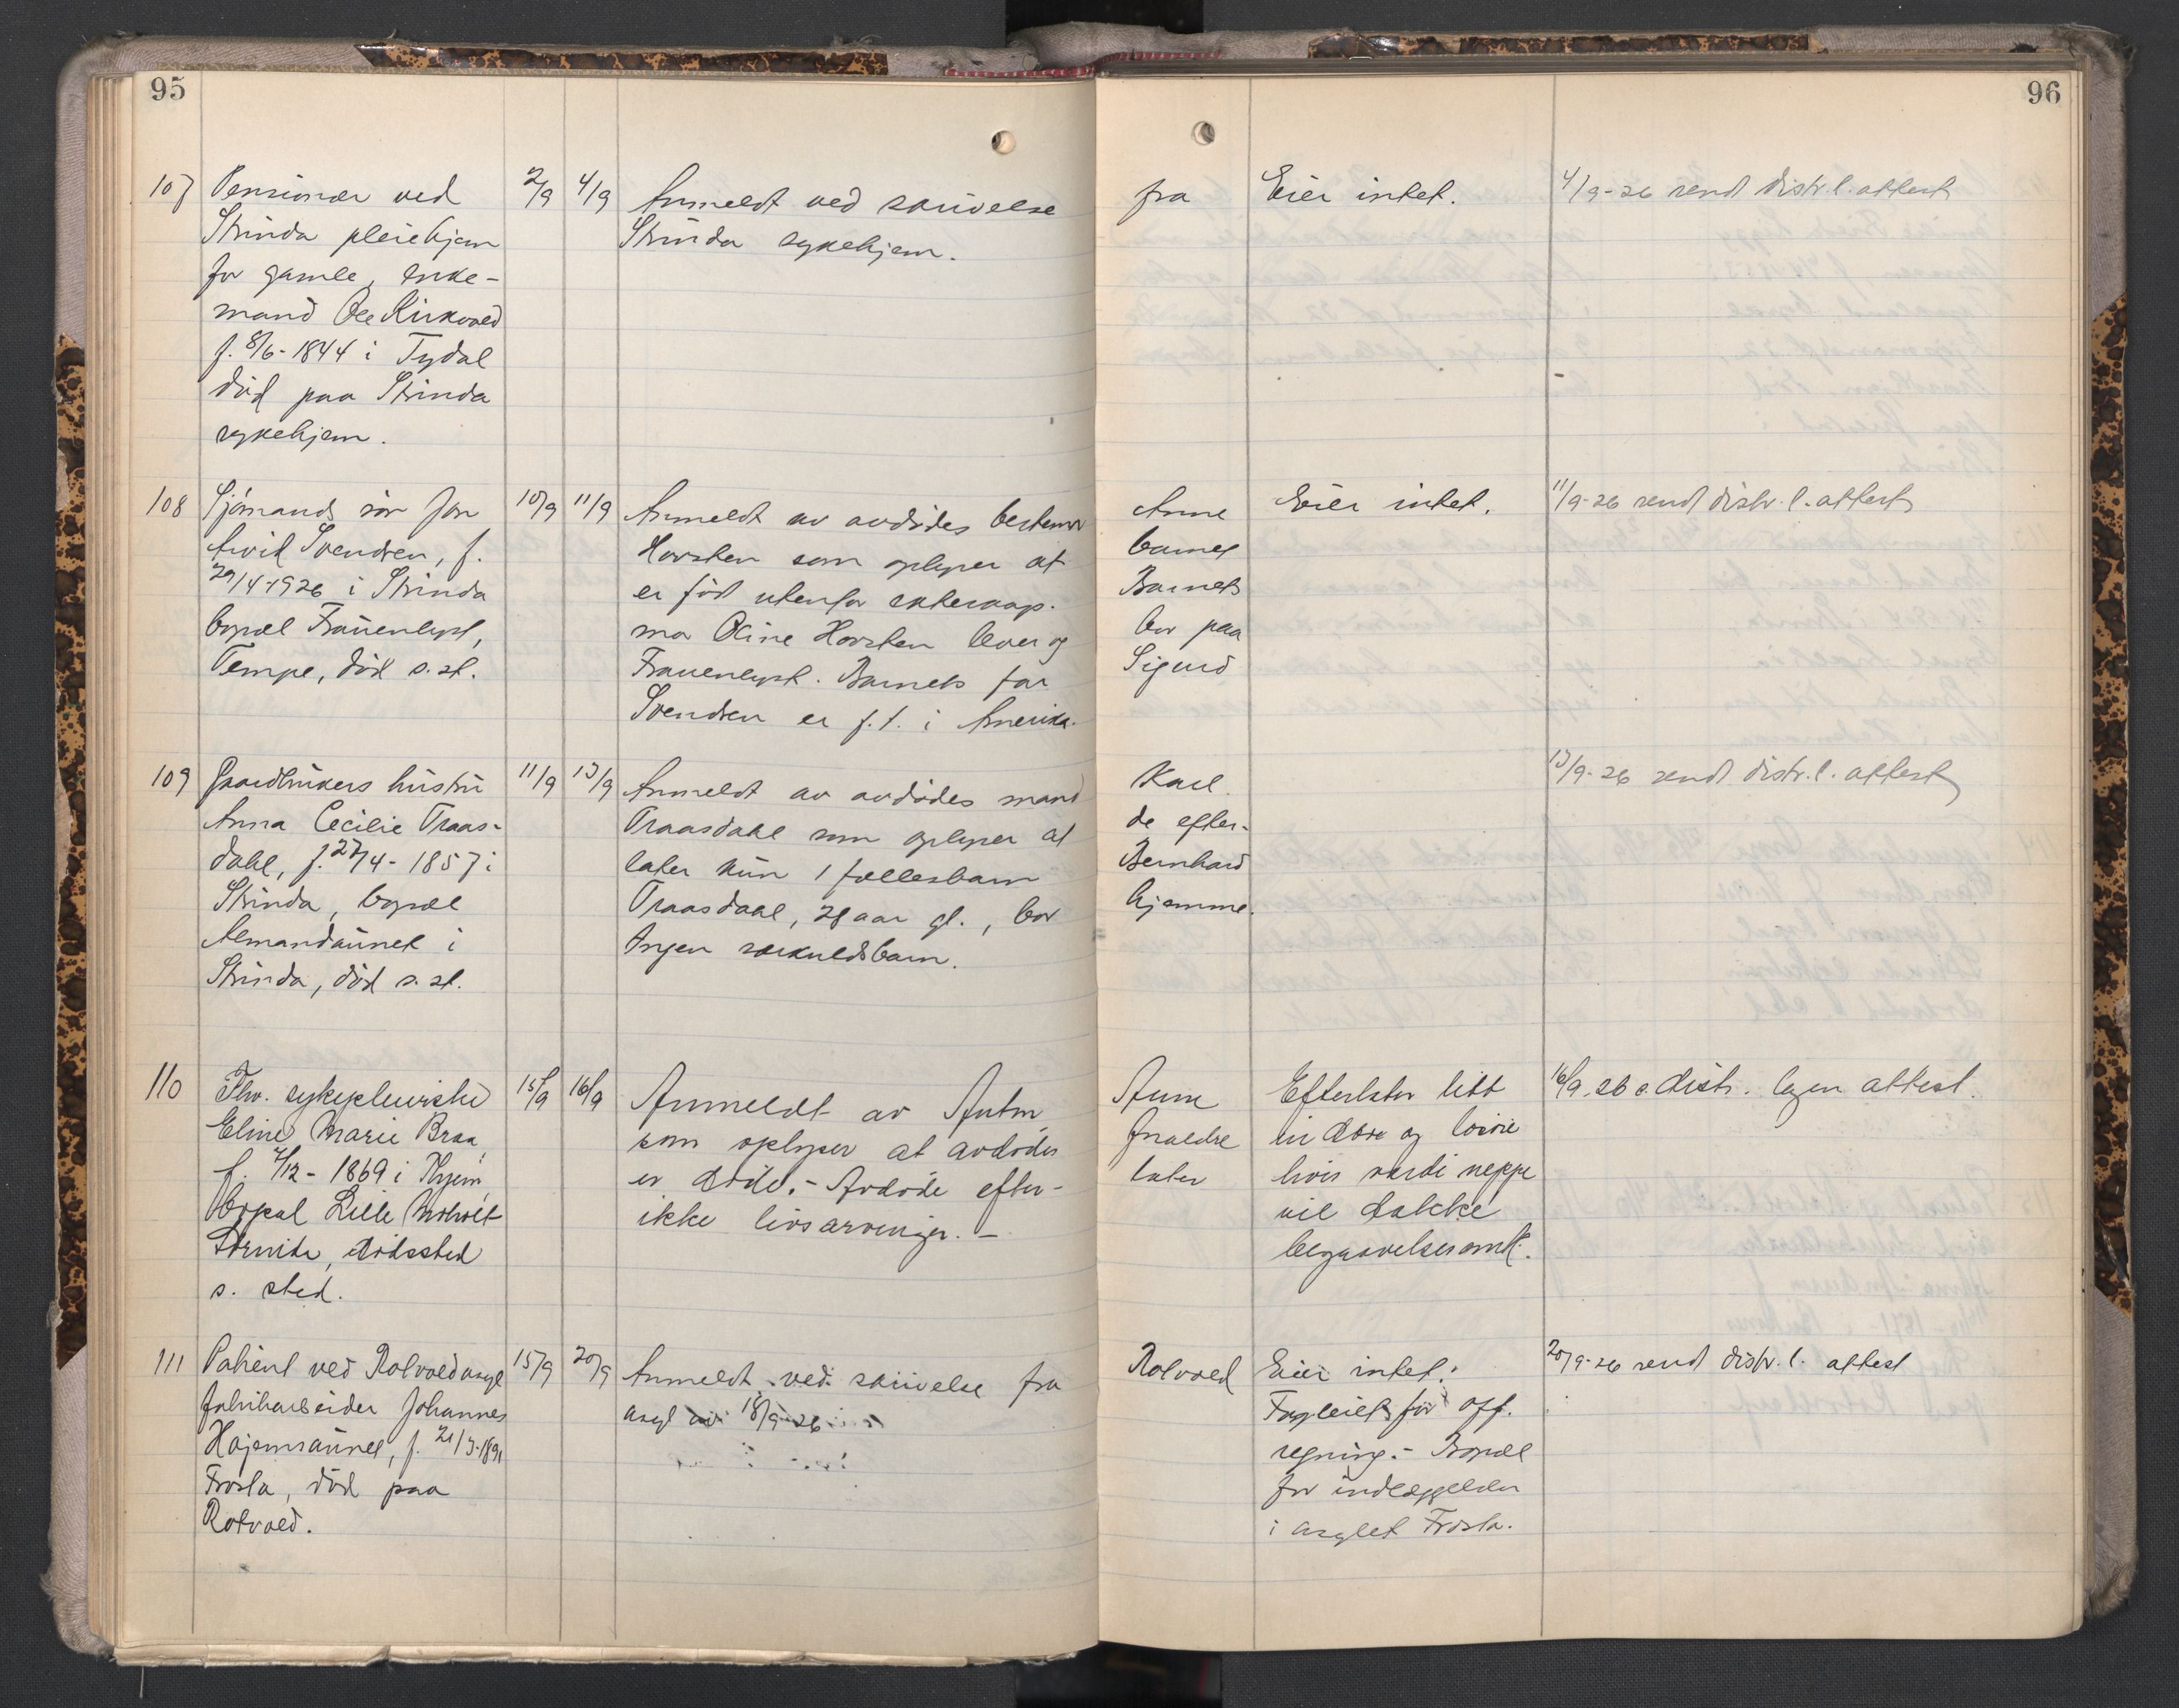 95
96
107
Pensionær ved
Strinda pleiehjem
for gamle, enke-
mand Ole Kirkvold
f. 8/6-1844 i Tydal
død paa Strinda
sykehjem.
2/9
4/9
Anmeldt ved skrivelse fra
Strinda sykehjem.
Eier intet.
4/9-26 send distr.l. attest
108
Sjømands søn Jon
Arvid Svendsen, f.
29/4-1926 i Strinda
bopæl Frauenlyst,
Tempe, død s. st.
10/9
11/9
Anmeldt av avdødes bestemor Anne
Horsten som oplyser at barnet
er født utenfor ekteskap. Barnets
mor Oline Horsten lever og bor paa
Frauenlyst. Barnets far Sigurd
Svendsen er f.t. i Amerika.
Eier intet.
11/9-26 send distr.l. attest
109
Gaardbrukers hustru
Anna Cecilie Traas-
dahl, f. 27/4-1857 i
Strinda, bopæl
Almandaunet i
Strinda, død s. st.
11/9
13/9
Anmeldt av avdødes mand Karl
Traasdahl som oplyser at de efter-
later kun 1 fællesbarn Bernhard
Traasdahl, 28 aar gl., bor hjemme.
Ingen særkuldsbarn.
13/9-26 send distr.l. attest
110
Fhv. sykepleierske
Eline Marie Braa,
f. 7/12-1869 i
bopæl Lille Moholt
Strinda, dødssted
s. sted.
15/9
16/9
Anmeldt av Anton Aune
som oplyser at avdødes foreldre
er døde.- Avdøde efter- later
ikke livsarvinger. -
Efterlater litt
indbo og løsøre
hvis værdi neppe
vil dække
begravelsesomk.
16/9.26 s. distr. legen attest.
111
Patient ved Rotvold asyl
fabrikarbeider Johannes
Hojemsaunet, f. 21/3-1891
Frosta, død paa
Rotvold.
15/9
20/9
Anmeldt ved skrivelse fra Rotvold
asyl av 18/9-26
Eier intet.
Forpleiet for off.
regning.- Bopæl
før indlæggelsen
i asylet Frosta.
20/9-26 send distr.l. attest